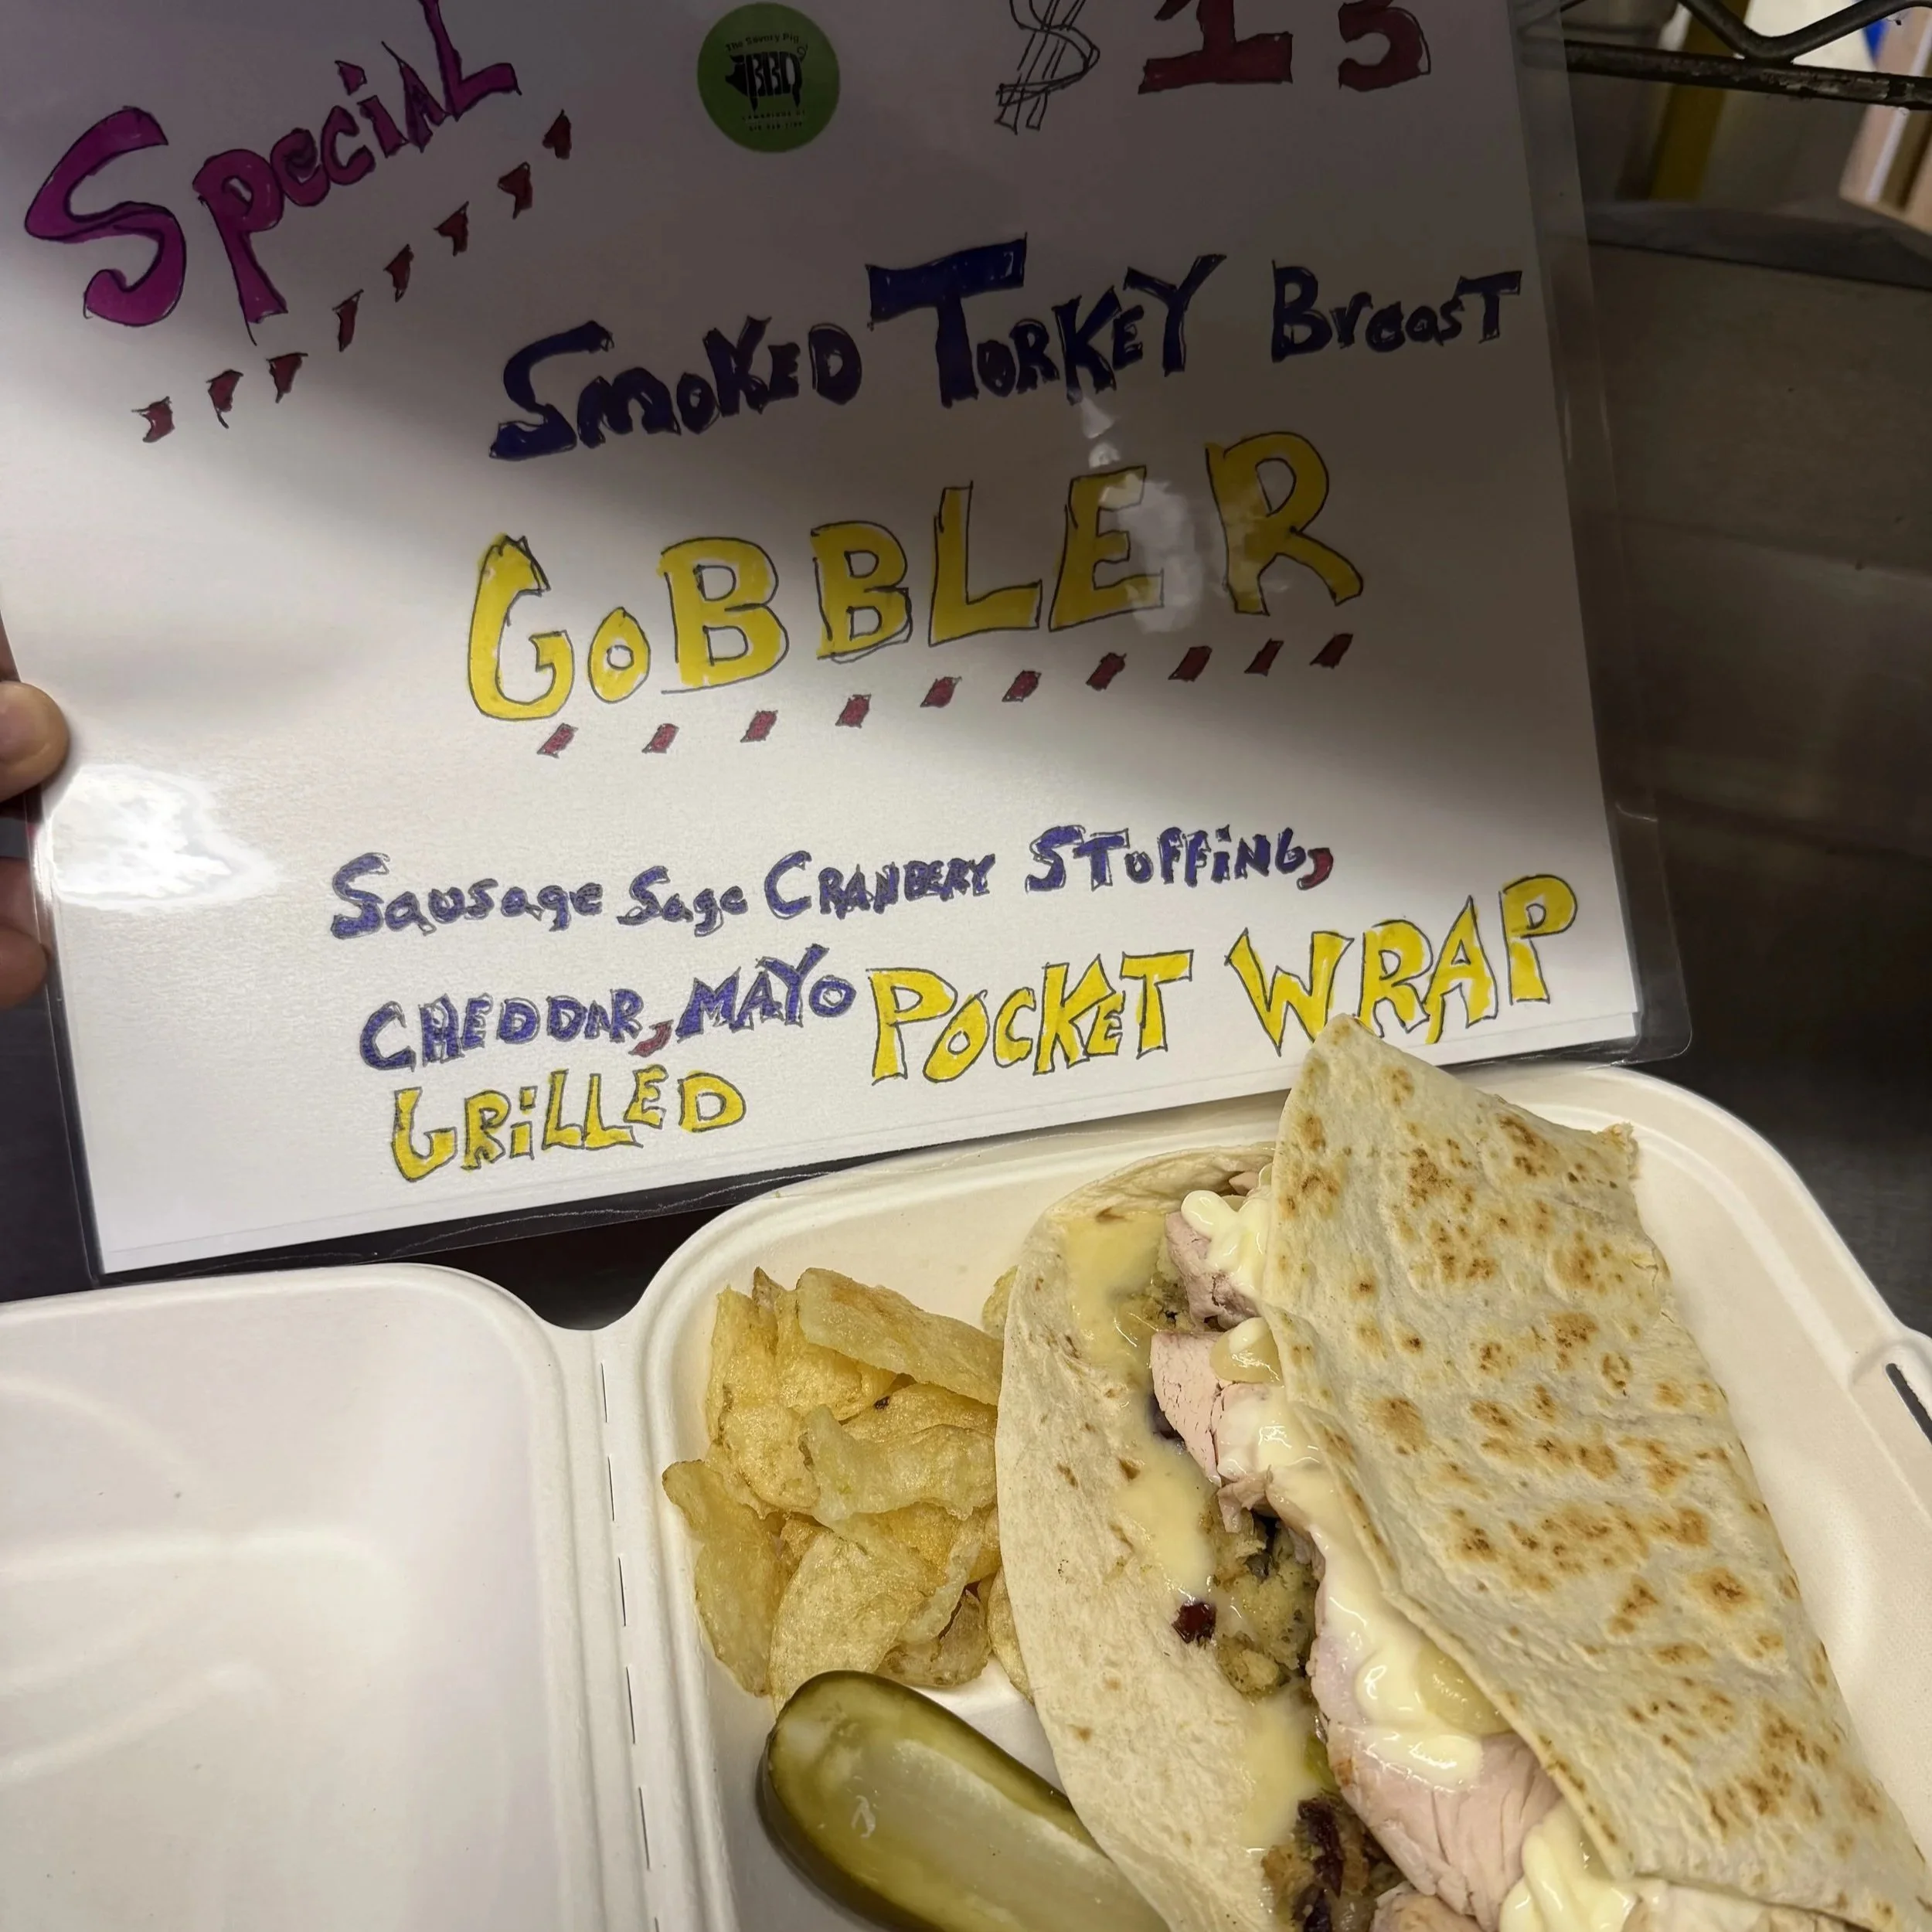 Special
$15
The Savory Pig
BBQ
SMOKED TURKEY BreasT
GoBBLER
Sausage Sage CRANBERY STUFFiNG,
CHEDDAR, MAYO POCKET WRAP
GRiLLED